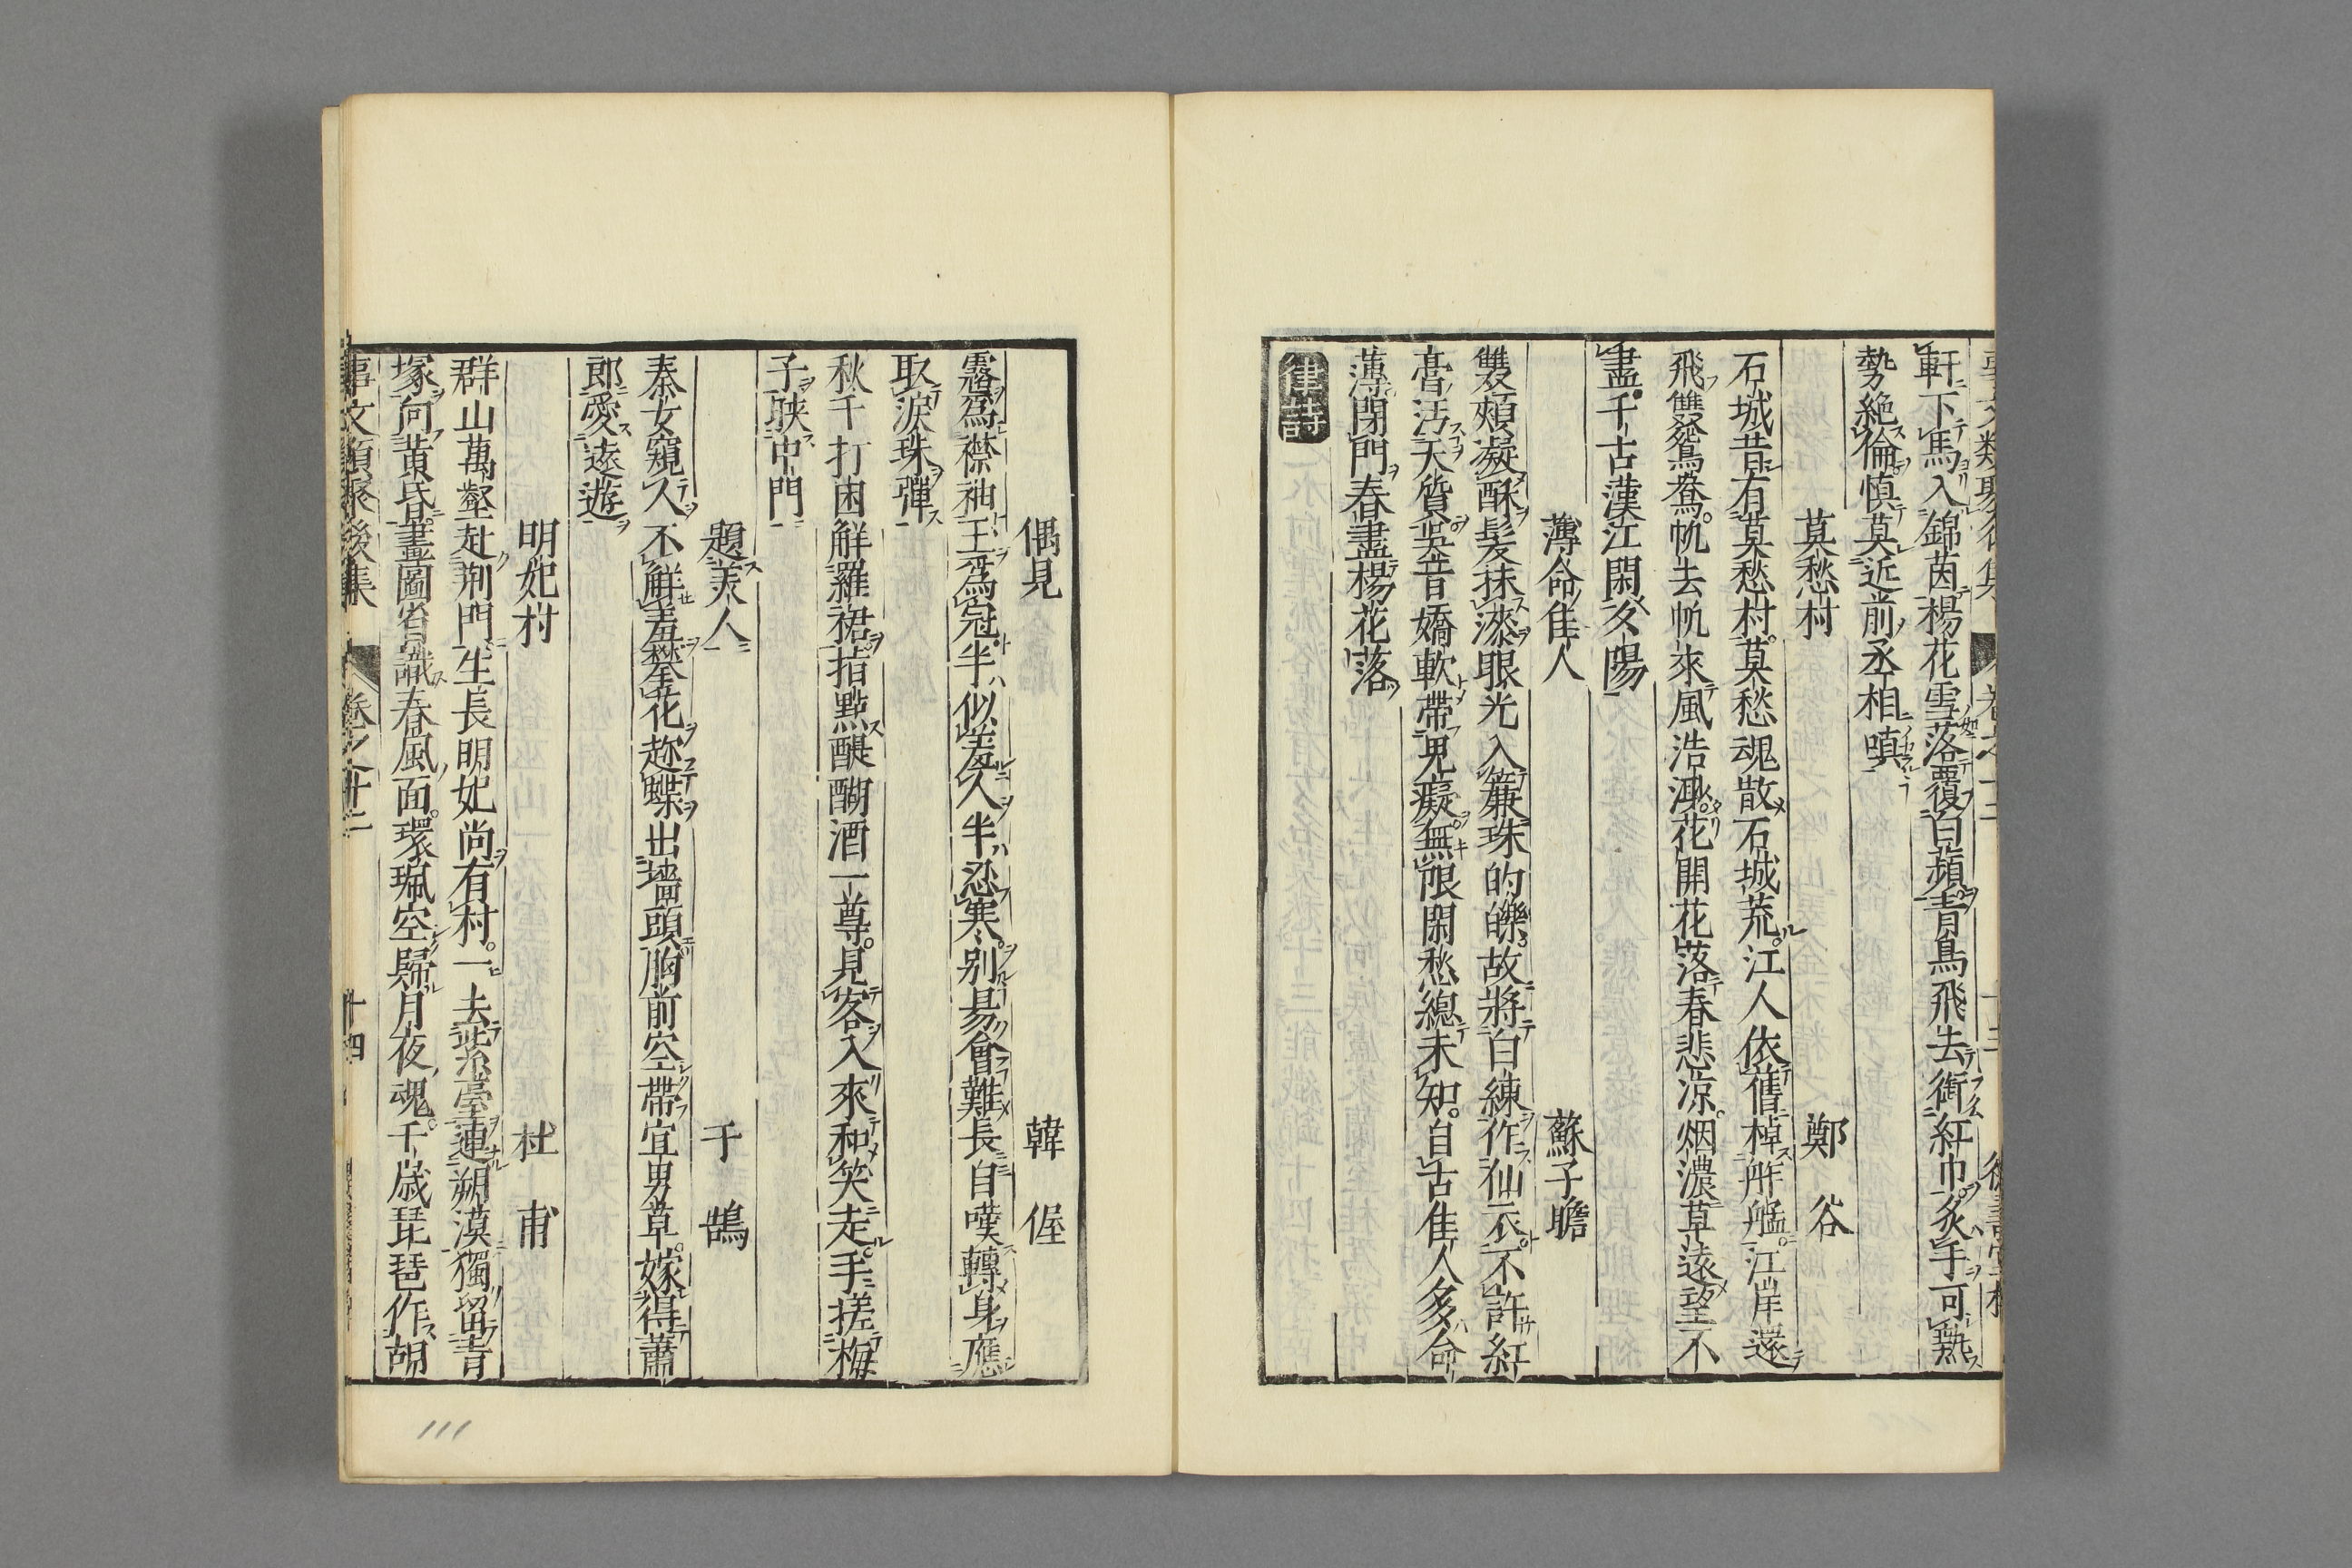 軒下馬入錦茵楊花雪落覆白蘋青鳥飛去銜紅巾炙手可熱
勢絶倫慎莫近前丞相嗔
莫愁村 鄭谷
石城昔有莫愁村莫愁魂散石城荒江人依舊棹舴艋江岸還
飛雙鴛鴦帆去帆來風浩渺花開花落春悲凉烟濃草遠望不
盡千古漢江閑夕陽
薄命佳人 蘇子瞻
雙頰凝酥髪抹漆眼光入簾珠的皪故將白練作仙衣不許紅
膏汚天質吳音嬌軟帶兒癡無限閑愁總未知自古佳人多命
薄閉門春盡楊花落
律詩
偶見 韓偓
霧爲襟袖玉爲冠半似羞人半忍寒別易會難長自嘆轉身應
取淚珠彈
秋千打困解羅裙指點醍醐酒一尊見客入來和笑走手搓梅
子映中門
題美人 于鵠
秦女窺人不解羞攀花趂蝶出墻頭胸前空帶宜男草嫁得蕭
郎愛遠遊
明妃村 杜甫
群山萬壑赴荆門生長明妃尚有村一去紫臺連朔漠獨留青
塚向黄昏畫圖省識春風面環珮空歸月夜魂千歳琵琶作胡
事文類聚後集 卷之十二 十四